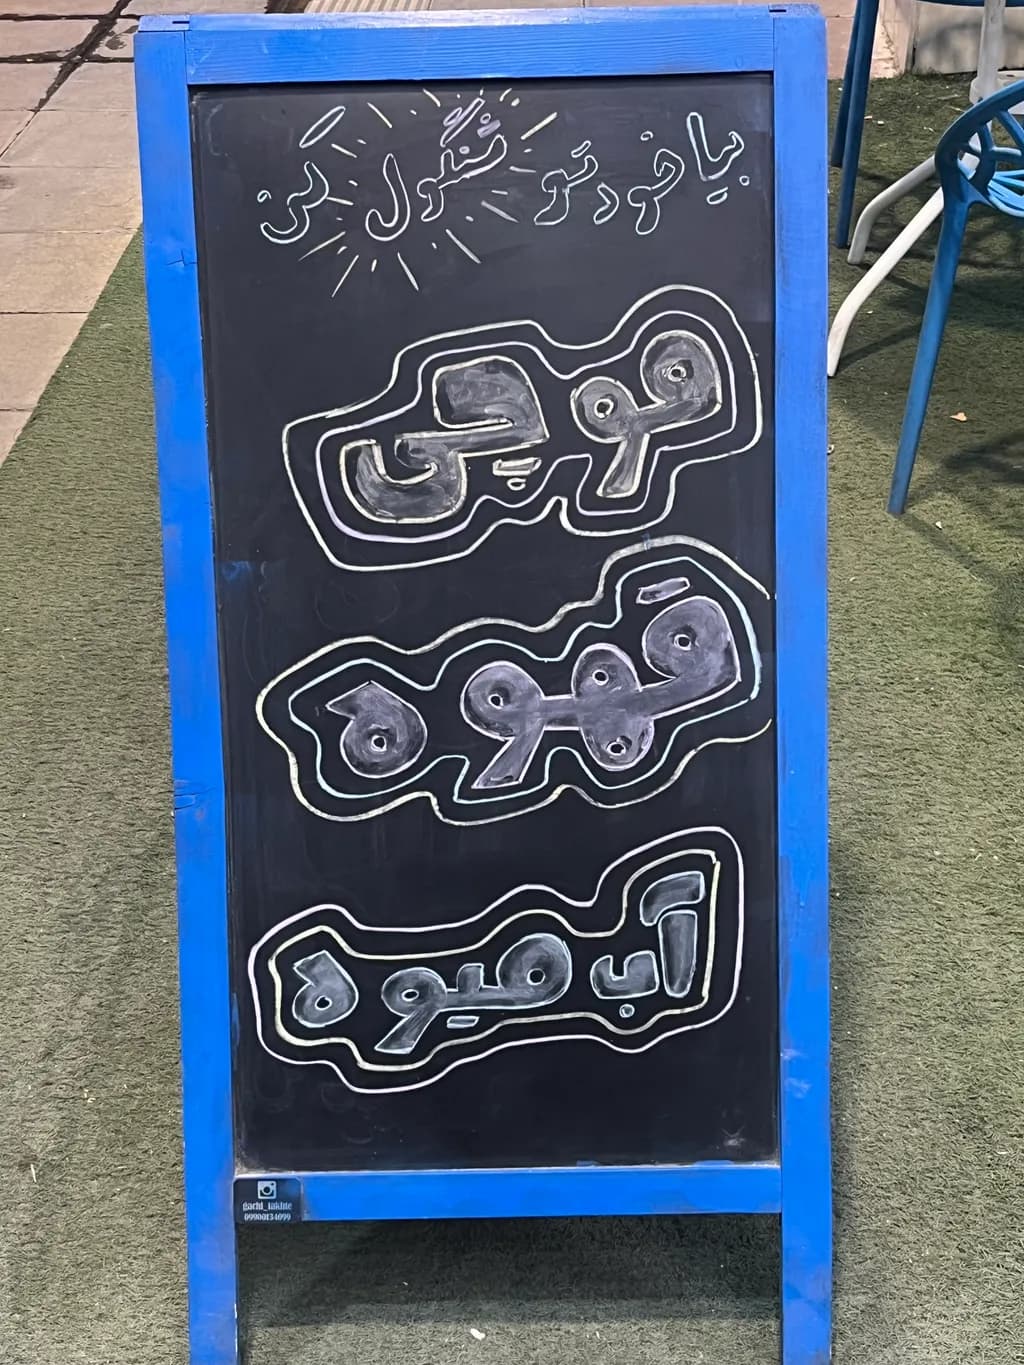 بیا خودتو شنگول کن
موچی
قهوه
آب میوه
gachi_takhte
09900134099